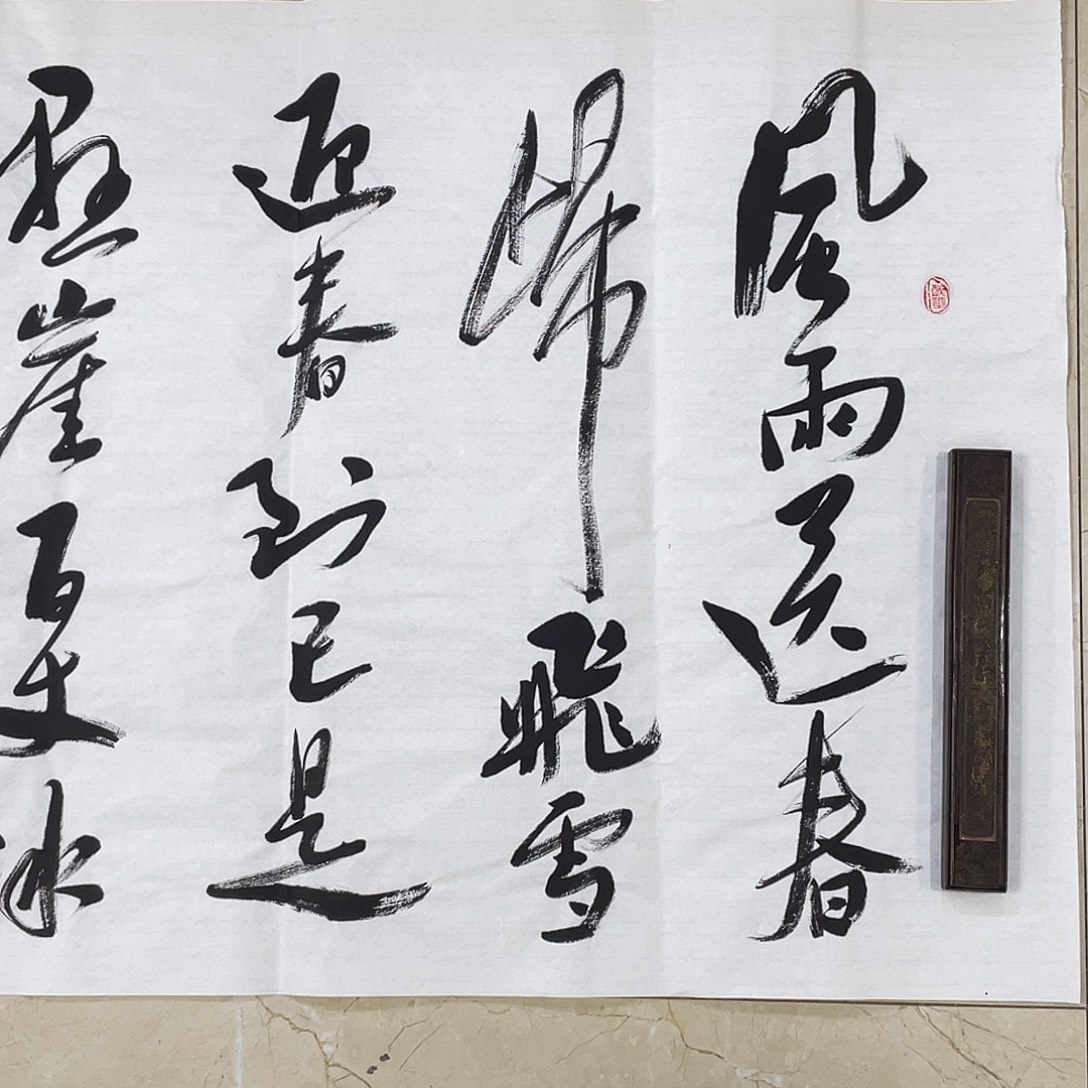 風雨送春
歸飛雪
迎春到已是
悬崖百丈冰